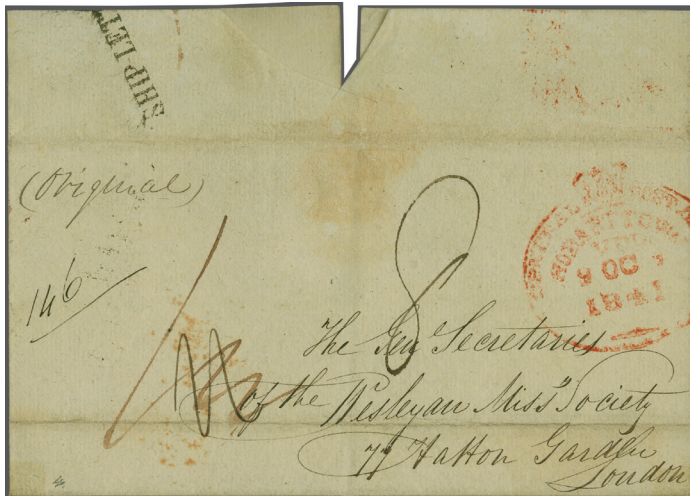 SHIP LET
(Original)
GENERAL POST
HOBART TOWN
9 OC
1841
146
8
The Gen Secretaries
of the Wesleyan Miss Society
77 Hatton Garden
London